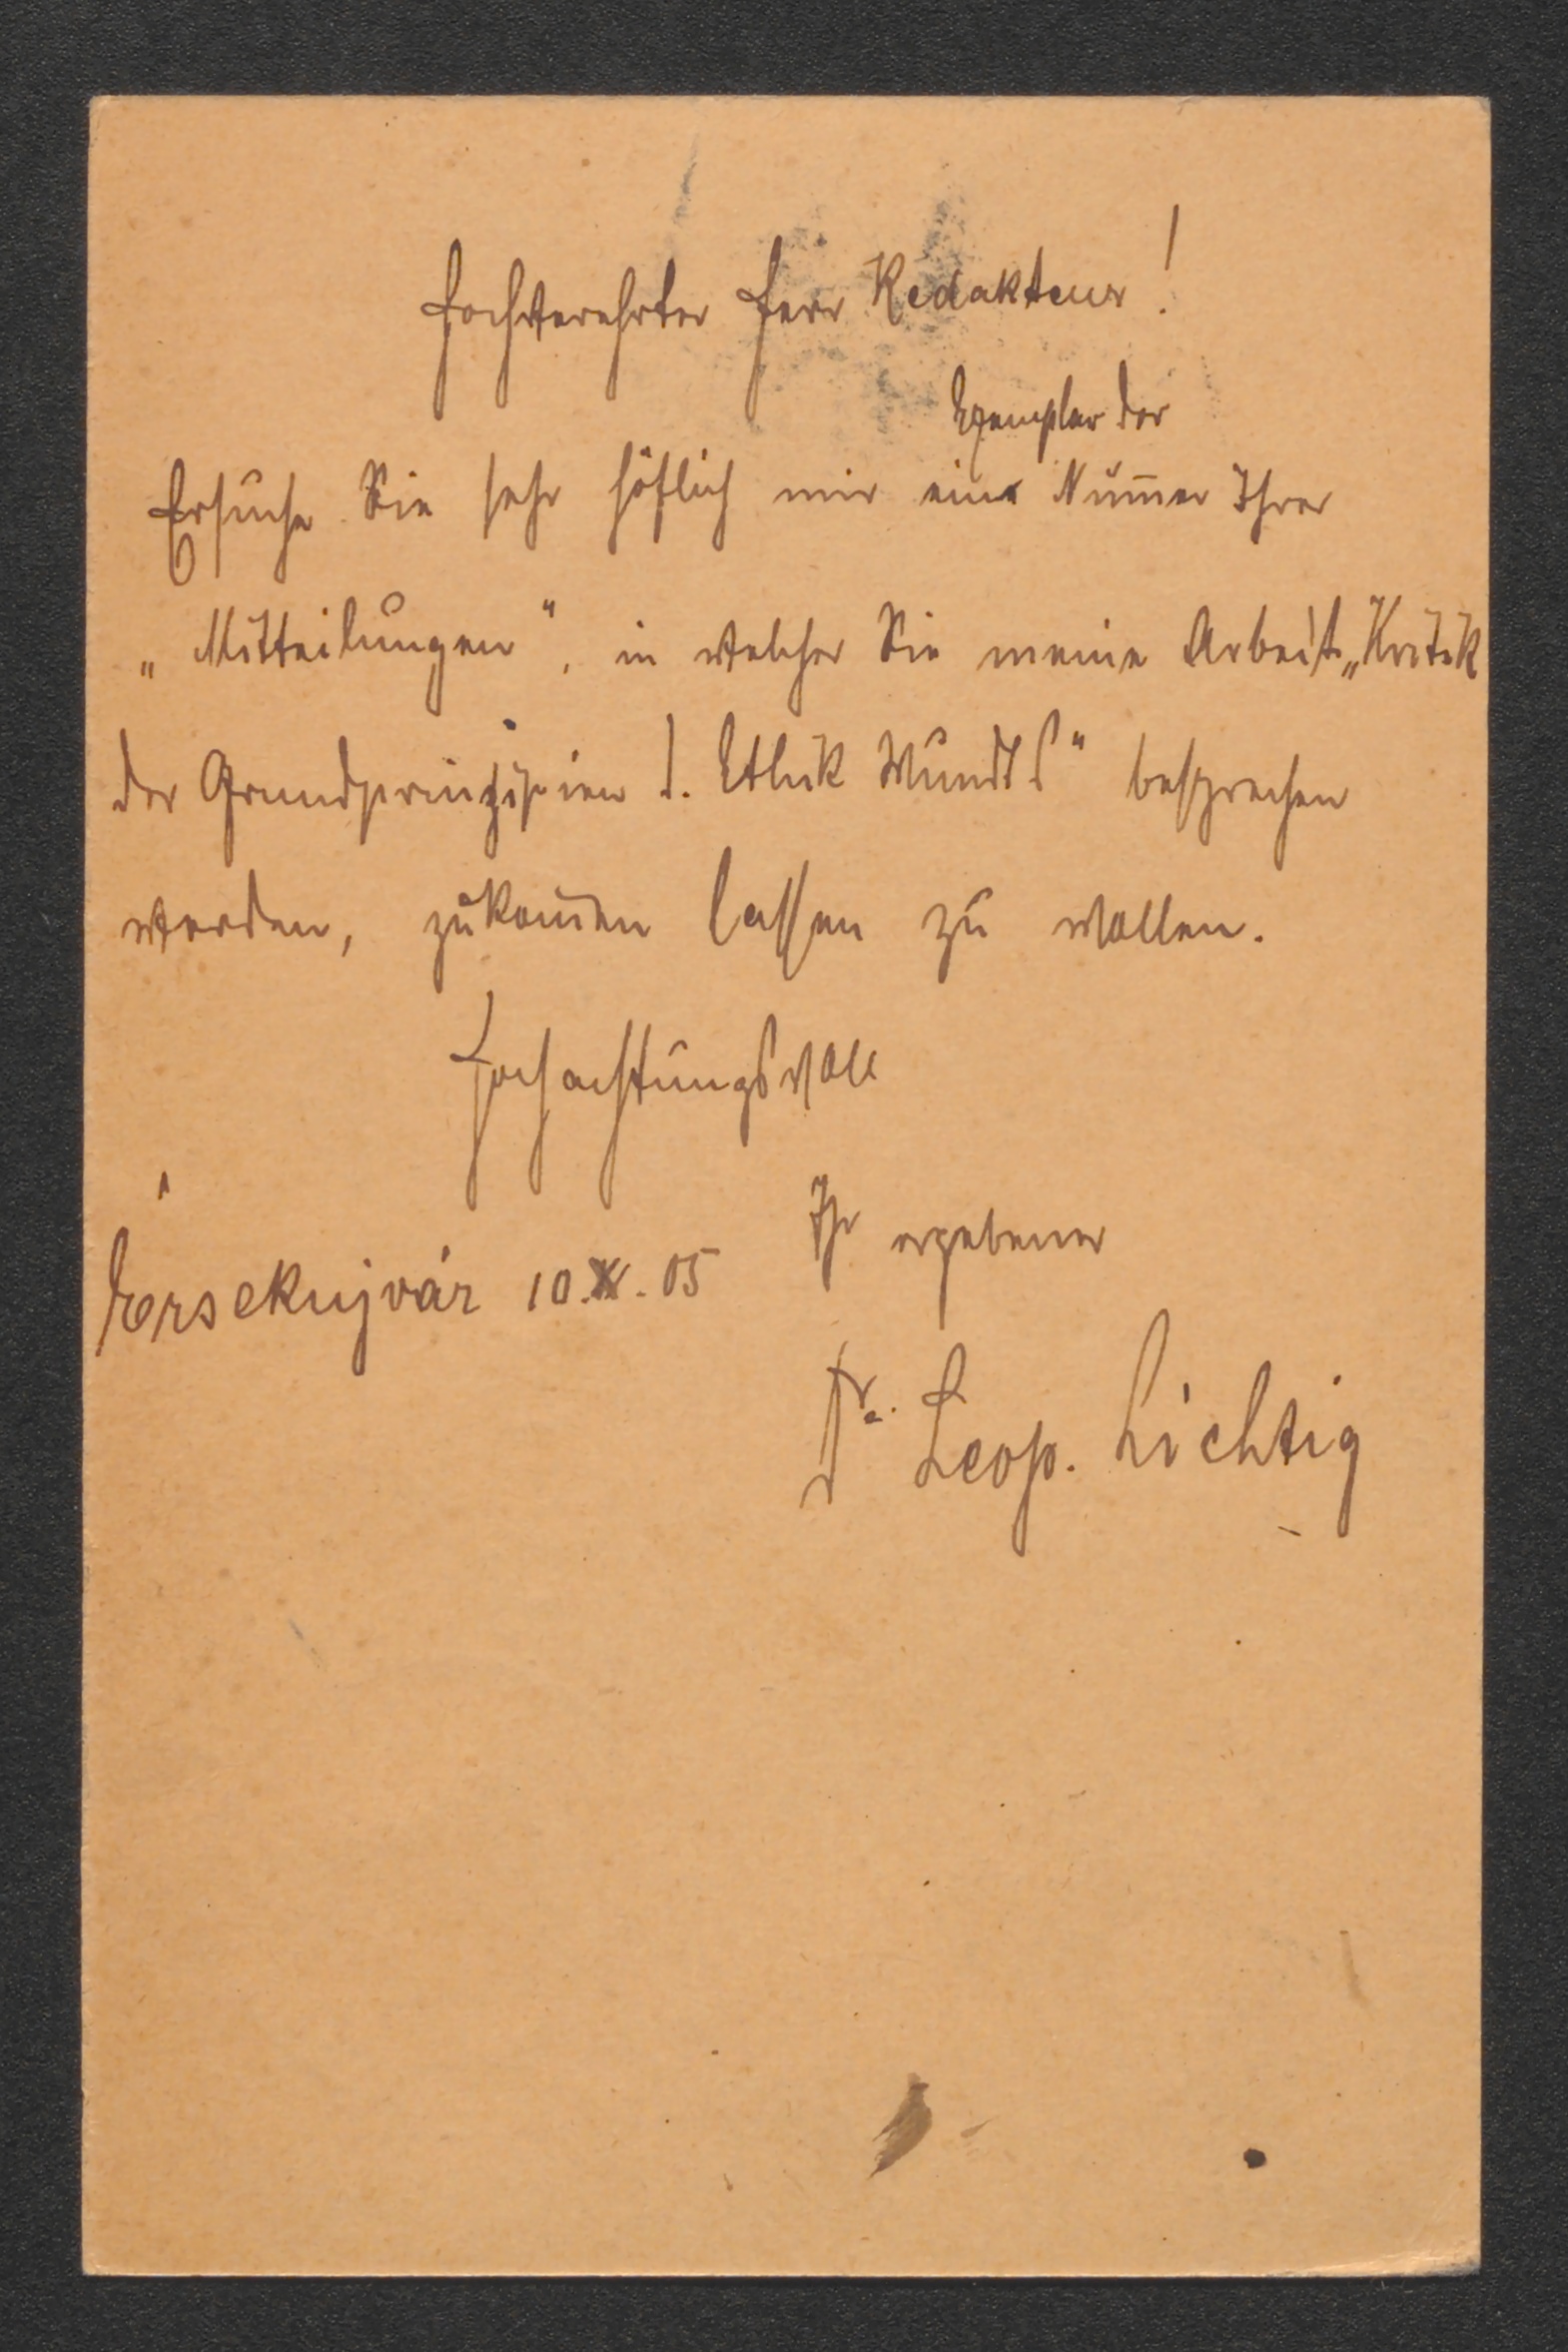 Hochverehrter Herr Redakteur!
Exemplar der
Ersuche Sie sehr höflich mir eine Num̅er Ihrer
„Mitteilungen“, in welcher Sie meine Arbeit „Kritik
der Grundprinzipien d. Ethik Wundts“ besprechen
werden, zukom̅en lassen zu wollen.
Hochachtungsvoll
Ihr ergebener
Érsekujvár 10.X.05
Dr. Leop. Lichtig